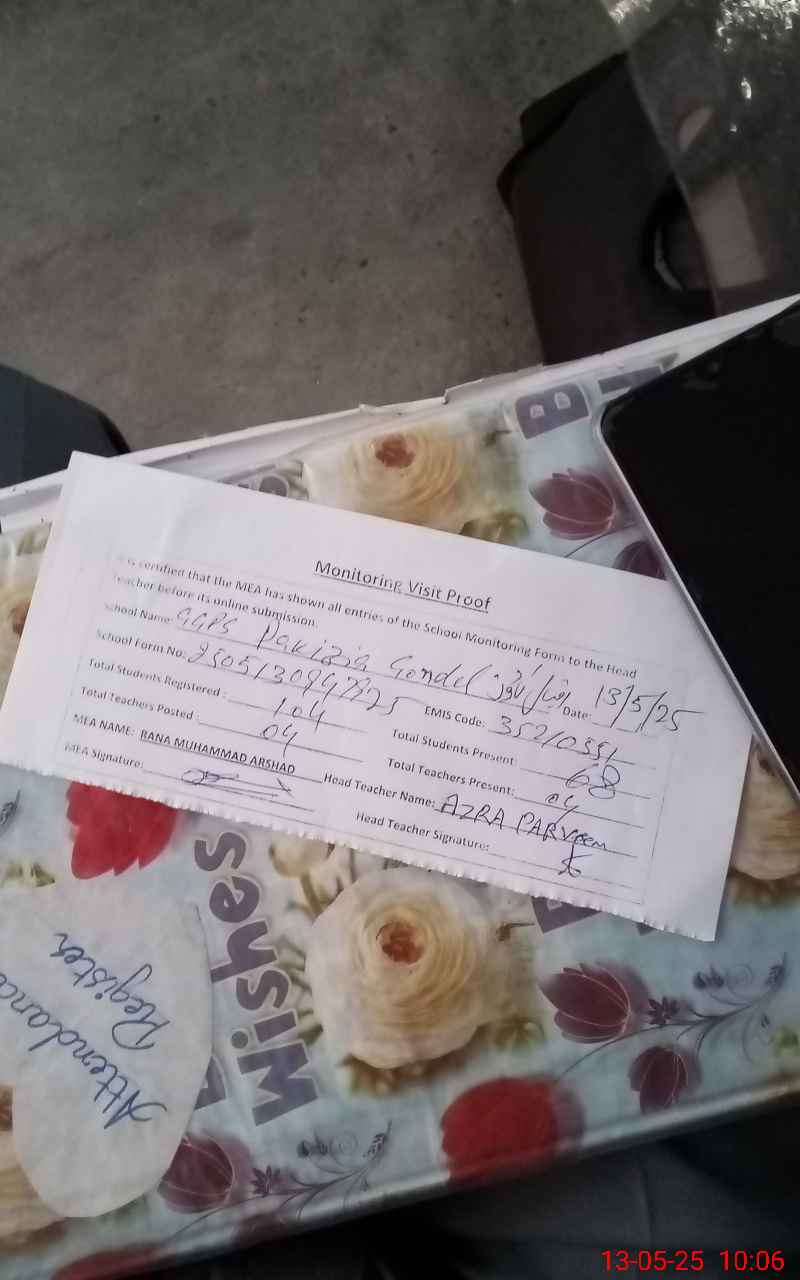 Monitoring Visit Proof
is certified that the MEA has shown all entries of the School Monitoring Form to the Head
Teacher before its online submission.
School Name: GGPS Pakizia Gondel Date: 13/5/25
School Form No: EMIS Code: 35210551
Total Students Registered: 104 Total Students Present: 68
Total Teachers Posted: 04 Total Teachers Present: 04
MEA NAME: RANA MUHAMMAD ARSHAD Head Teacher Name: AZRA PARVEEN
MEA Signature: Head Teacher Signature:
Wishes
Attendance
Register
13-05-25 10:06